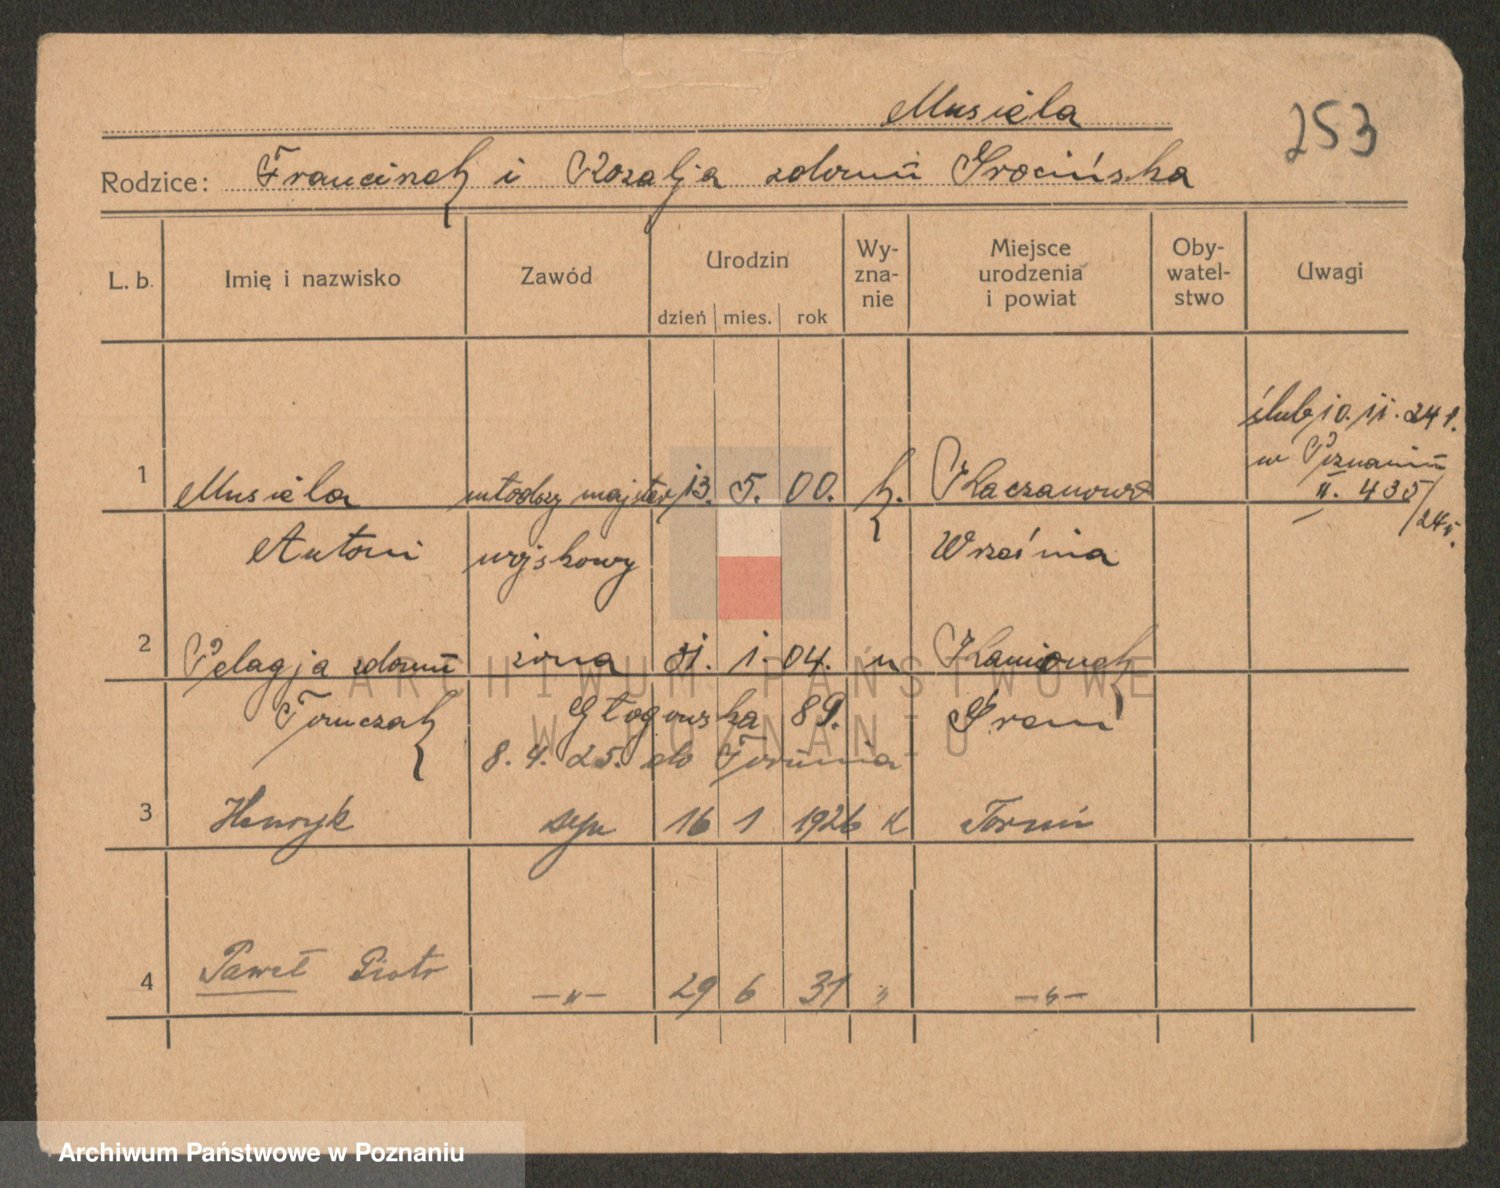 Musiela
253
Rodzice: Franciszek i Rozalja zdomu Grocińska
L. b. Imię i nazwisko Zawód Urodzin dzień mies. rok Wy-zna-nie Miejsce urodzenia i powiat Oby-watel-stwo Uwagi
ślub 10. 11. 24 r.
w Poznaniu
1 Musiela młodszy majster 13. 5. 00. k. Kaczanowo II. 435/24r.
Antoni wojskowy Września
2 Pelagja zdomu żona 31. 1. 04. " Kamionek
Tomczak Głogowska 89. Śrem
8. 4. 25. do Torunia
3 Henryk syn 16 1 1926 k Toruń
4 Paweł Piotr —"— 29 6 31 " —"—
ARCHIWUM PAŃSTWOWE
W POZNANIU
Archiwum Państwowe w Poznaniu